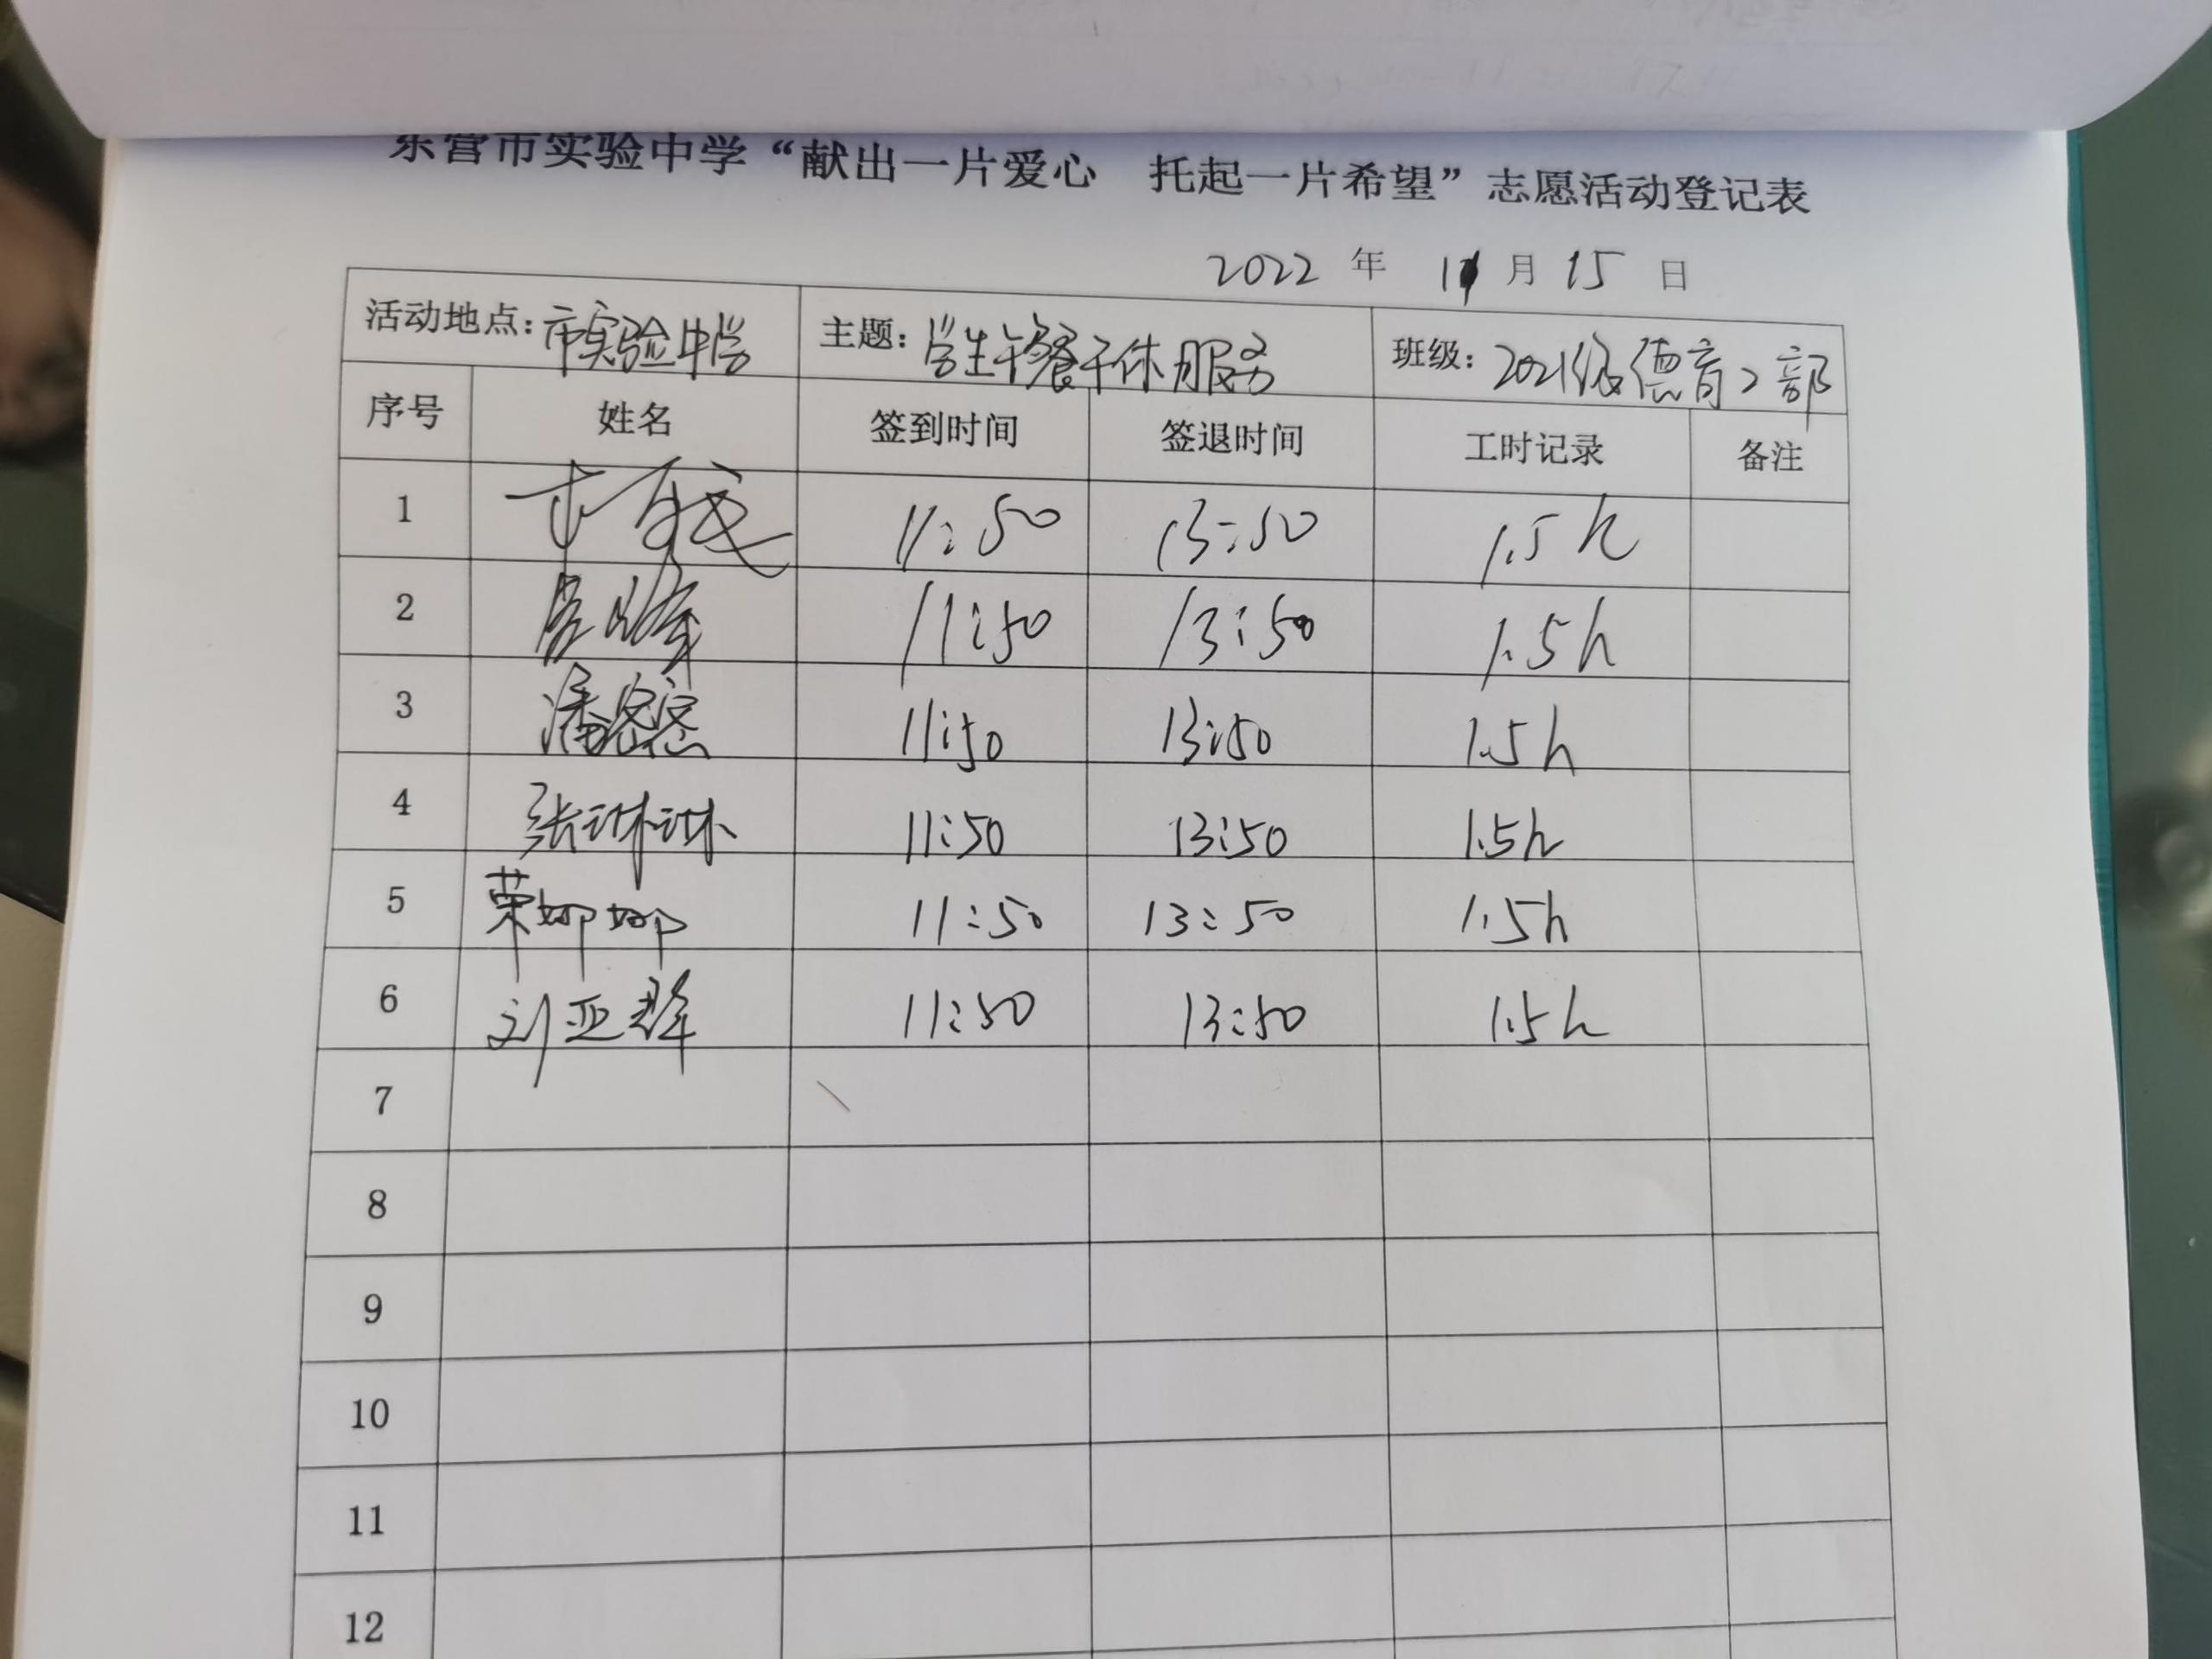 东营市实验中学“献出一片爱心 托起一片希望”志愿活动登记表
2022 年 11 月 15 日
活动地点：市实验中学 主题：学生午餐午休服务 班级：2021级德育2部
序号 姓名 签到时间 签退时间 工时记录 备注
1 11:50 13:50 1.5h
2 11:50 13:50 1.5h
3 潘密密 11:50 13:50 1.5h
4 张琳琳 11:50 13:50 1.5h
5 荣娜娜 11:50 13:50 1.5h
6 刘亚群 11:50 13:50 1.5h
7
8
9
10
11
12